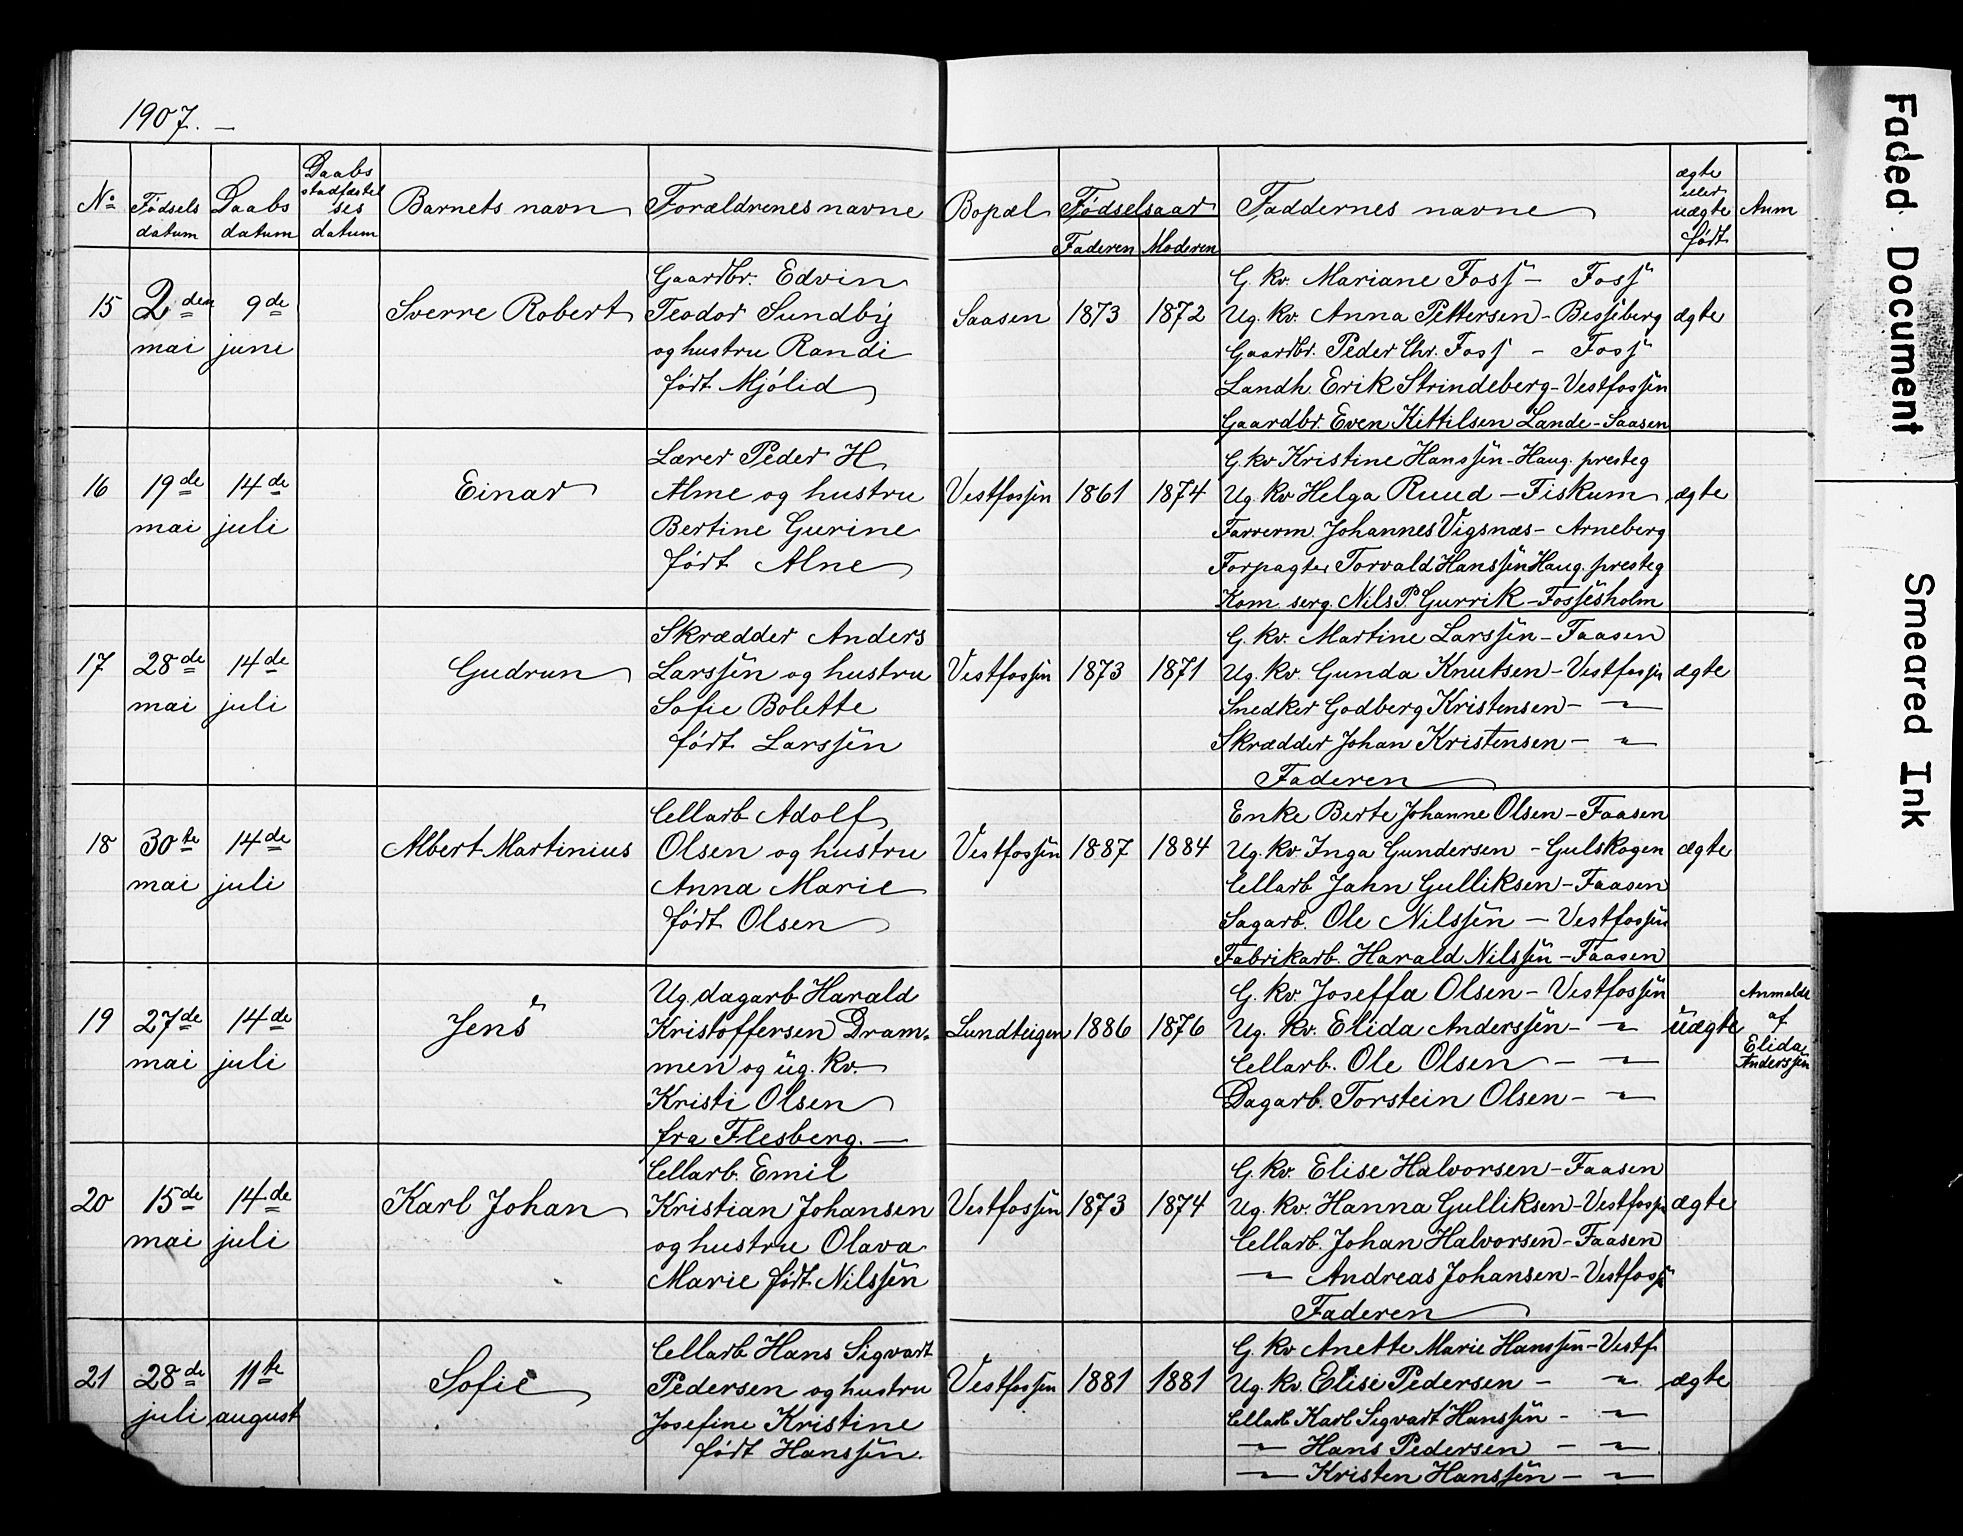 1907. —
No
Fødsels datum
Daabs datum
Daabs stadfæstel ses datum
Barnets navn
Forældrenes navne
Bopæl
Fødselsaar
Faderen
Moderen
Faddernes navne
ægte eller uægte født
Anm
15
2den mai
9de juni
Sverre Robert
Gaardbr. Edvin
Teodor Sundby
og hustru Randi
født Mjólid
Saasen
1873
1872
G. kv. Mariane Foss – Foss
Ug. kv. Anna Pettersen – Besseberg
Gaardbr. Peder Chr. Foss – Foss
Landh. Erik Strindeberg – Vestfossen
Gaardbr. Even Kittilsen Lande – Saasen
ægte
16
19de mai
14de juli
Einar
Lærer Peder H
Alme og hustru
Bertine Gurine
født Alne
Vestfossen
1861
1874
G. kv Kristine Hanssen – Haug. presteg
Ug. kv Helga Ruud – Fiskum
Farverm. Johannes Vigsnæs – Arneberg
Forpagter Torvald Hanssen Haug. presteg
Kom. serg. Nils P. Gurrik – Fossesholm
ægte
17
28de mai
14de juli
Gudrun
Skrædder Anders
Larssen og hustru
Sofie Bolette
født Larssen
Vestfossen
1873
1871
G. kv. Martine Larssen – Faasen
Ug. kv. Gunda Knutsen – Vestfossen
Snedker Godberg Kristensen – –"–
Skrædder Johan Kristensen – –"–
Faderen
ægte
18
30te mai
14de juli
Albert Martinius
Cellarb Adolf
Olsen og hustru
Anna Marie
født Olsen
Vestfossen
1887
1884
Enke Berte Johanne Olsen – Faasen
Ug. kv Inga Gundersen – Gulskogen
Cellarb Jahn Gulliksen – Faasen
Sagarb. Ole Nilssen – Vestfossen
Fabrikarb. Harald Nilssen – Faasen
ægte
19
27de mai
14de juli
Jens
Ug. dagarb Harald
Kristoffersen Dram-
men og ug. kv.
Kristi Olsen
fra Flesberg. —
Lundteigen
1886
1876
G. kv. Joseffa Olsen – Vestfossen
Ug. kv. Elida Anderssen – –"–
Cellarb. Ole Olsen – –"–
Dagarb. Torstein Olsen – –"–
uægte
Anmeldt
af
Elida
Anderssen
20
15de mai
14de juli
Karl Johan
Cellarb. Emil
Kristian Johansen
og hustru Olava
Marie født Nilssen
Vestfossen
1873
1874
G. kv. Elise Halvorsen – Faasen
Ug. kv. Hanna Gulliksen – Vestfoss
Cellarb. Johan Halvorsen – Faasen
–"– Andreas Johansen – Vestfoss
Faderen
ægte
21
28de juli
11te august
Sofie
Cellarb Hans Sigvart
Pedersen og hustru
Josefine Kristine
født Hanssen.
Vestfossen
1881
1881
G. kv Anette Marie Hanssen – Vestf.
Ug. kv. Elise Pedersen – –"–
Cellarb Karl Sigvart Hanssen – –"–
–"– Hans Pedersen – –"–
–"– Kristen Hanssen – –"–
ægte
Faded Document
Smeared Ink